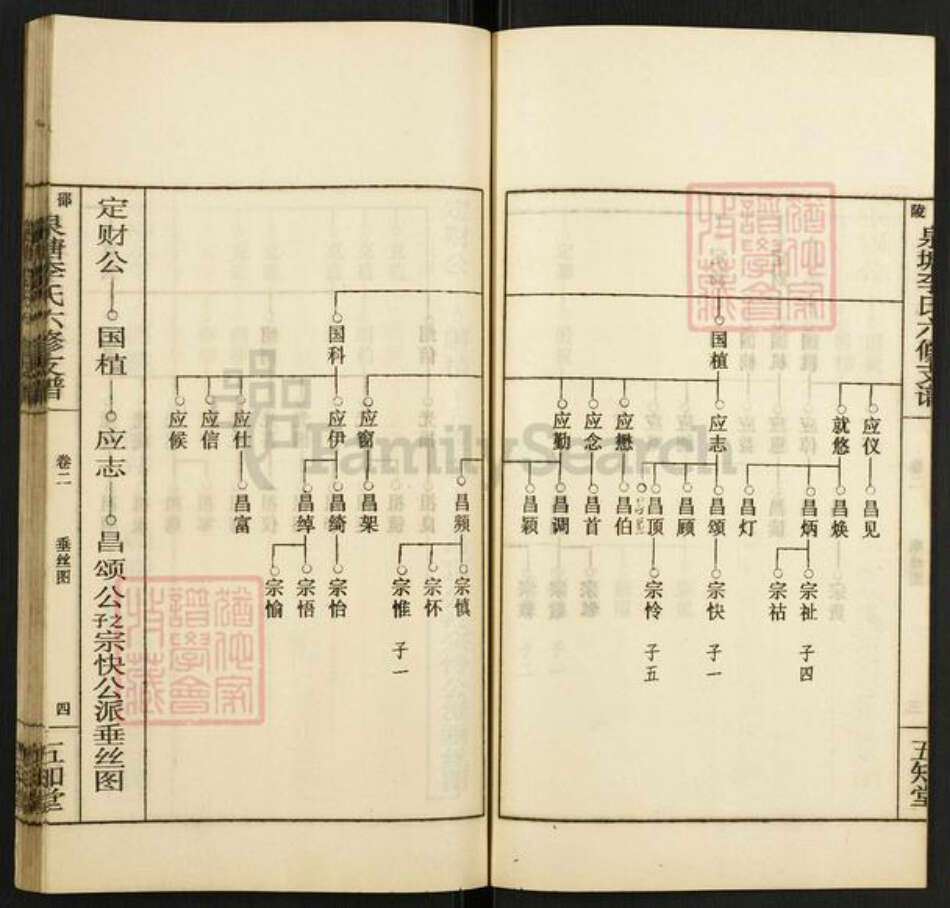 陵
泉塘李氏六修支谱
五知堂
国植
应仪
就悠
应志
应懋
应念
应勤
昌见
昌焕
昌炳
昌灯
昌颂
昌顾
昌顶
昌伯
昌首
昌调
昌颖
宗祉
子四
宗祜
宗快
子一
宗怜
子五
国科
应窗
应伊
应仕
应信
应候
昌频
昌架
昌绮
昌绰
昌富
宗慎
宗怀
宗惟
子一
宗怡
宗悟
宗愉
定财公
国植
应志
昌颂公子宗快公派垂丝图
邵
泉塘李氏六修支谱
卷二
垂丝图
四
五知堂
FamilySearch